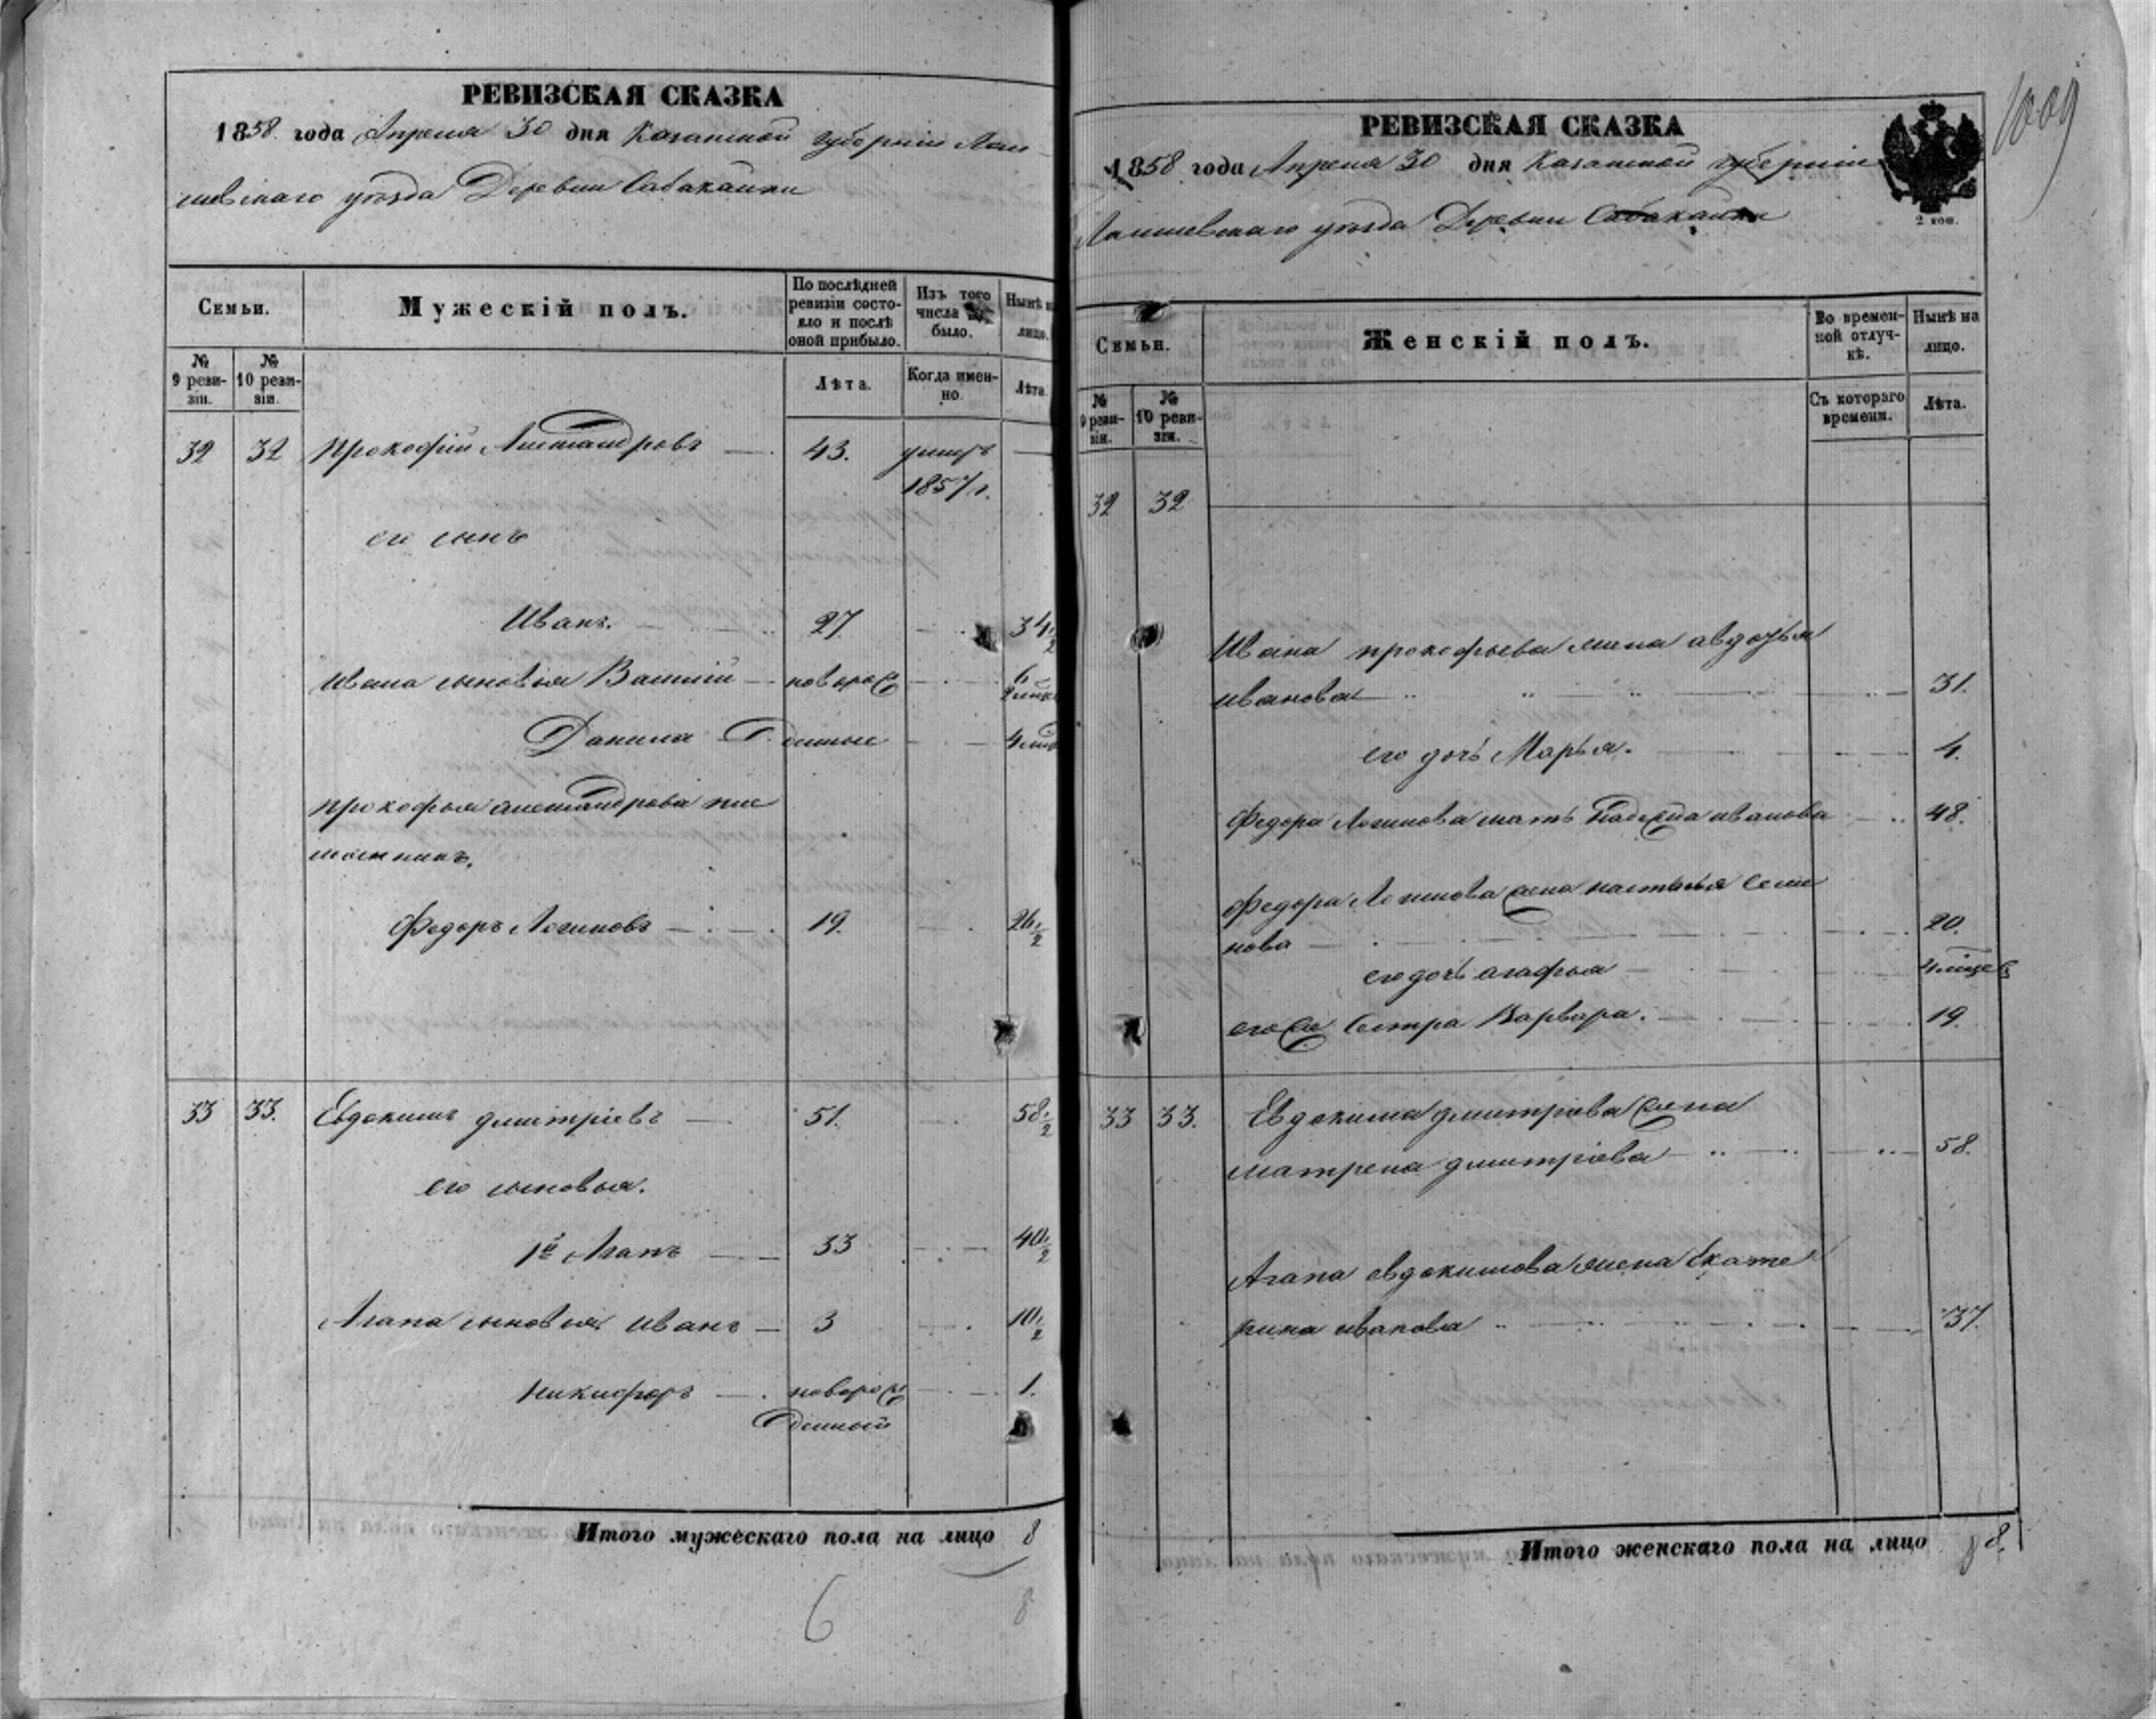 РЕВИЗСКАЯ СКАЗКА
1858 года Апреля 30 дня Казанской губерніи Лаи
шевскаго уѣзда Деревни Сабакайки
Семьи.
Мужескій полъ.
По послѣдней ревизіи состояло и послѣ оной прибыло.
Изъ того числа
было.
Нынѣ
лицо.
№ 9 ревизіи.
№ 10 ревизіи.
Лѣта.
Когда именно.
Лѣта.
32 32 Прокофій Александровъ 43. умеръ
1857 г.
его сынъ
Иванъ. 27 34 1/2
Ивана сыновья Василій новорож 6
Данила денные 4
Прокофья александрова пле
мянникъ.
Федоръ Логиновъ 19. 26 1/2
33 33. Евдокимъ дмитріевъ 51. 58 1/2
его сыновья.
1й Агапъ 33 40 1/2
Агапа сыновья Иванъ 3 10 1/2
Никифоръ новорож 1.
денный
Итого мужескаго пола на лицо 8
6 8
1009
РЕВИЗСКАЯ СКАЗКА
1858 года Апреля 30 дня Казанской губерніи
Лаишевскаго уѣзда Деревни Сабакайки
2 коп.
Семьи.
Женскій полъ.
Во временной отлучкѣ.
Нынѣ на лицо.
№ 9 ревизіи.
№ 10 ревизіи.
Съ котораго времени.
Лѣта.
32 32
Ивана прокофьева жена авдотья
иванова 31.
его дочь Марья. 4.
Федора Логинова мать Надежда иванова 48.
Федора Логинова жена настасья семе
нова 20.
его дочь агафья 4
его же Сестра Варвара. 19.
33 33. Евдокима дмитріева жена
матрена дмитріева 58.
Агапа евдокимова жена Екате
рина иванова 37.
Итого женскаго пола на лицо 8.